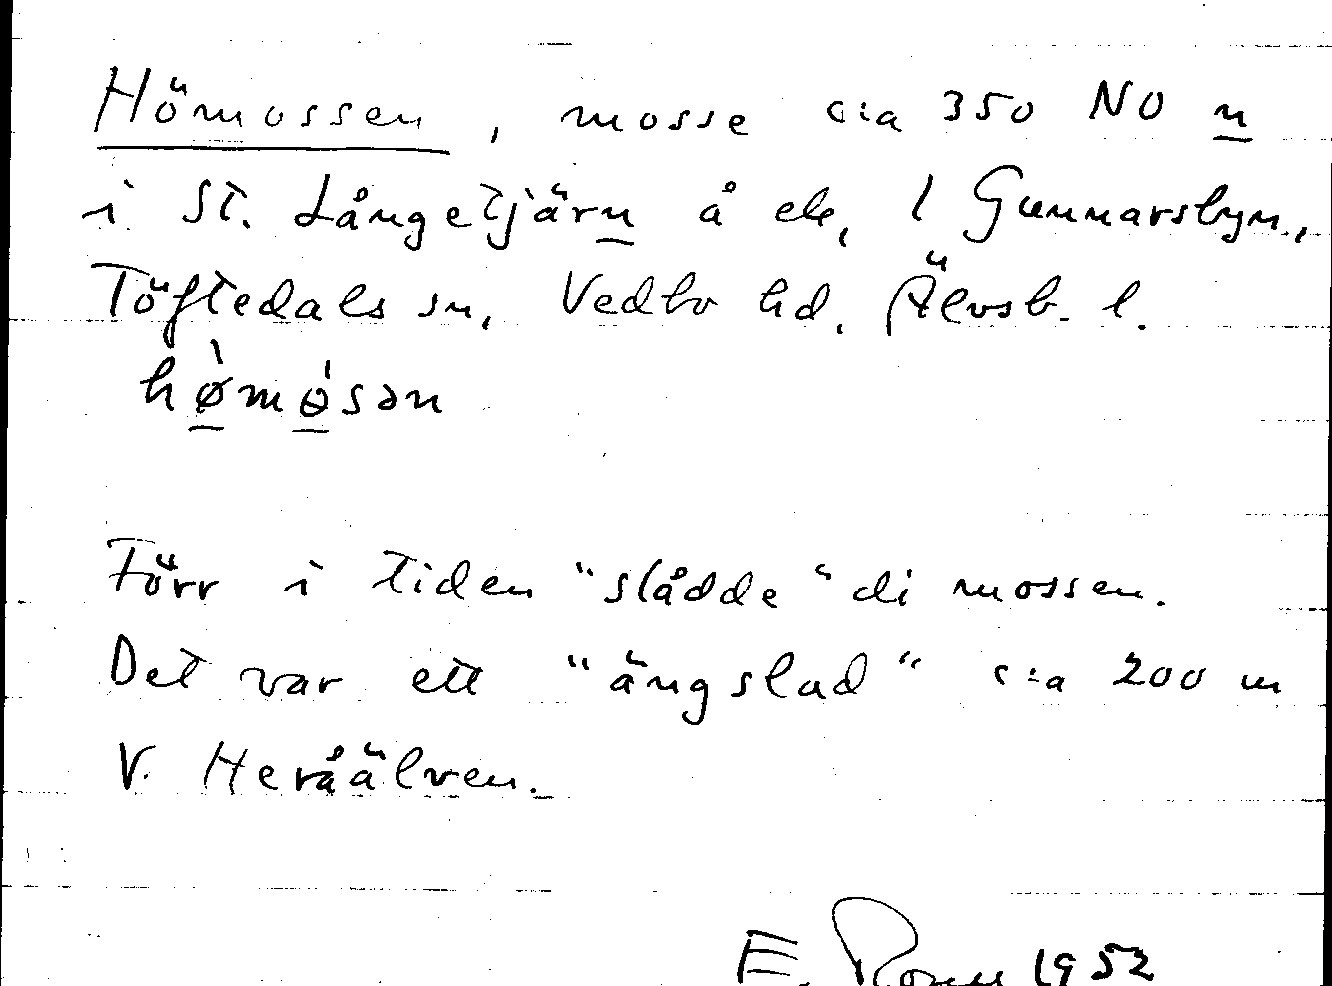 Hömossen, mosse c:a 350 NO n
i St. Långetjärn å ek, 1 Gunnarsbyn,
Töftedals sn, Vedbo hd. Älvsb. l.
hø̀mɵ́sən
Förr i tiden "slådde" di mossen.
Det var ett "ängslad" c:a 200 m
V. Heråälven.
E. 1952